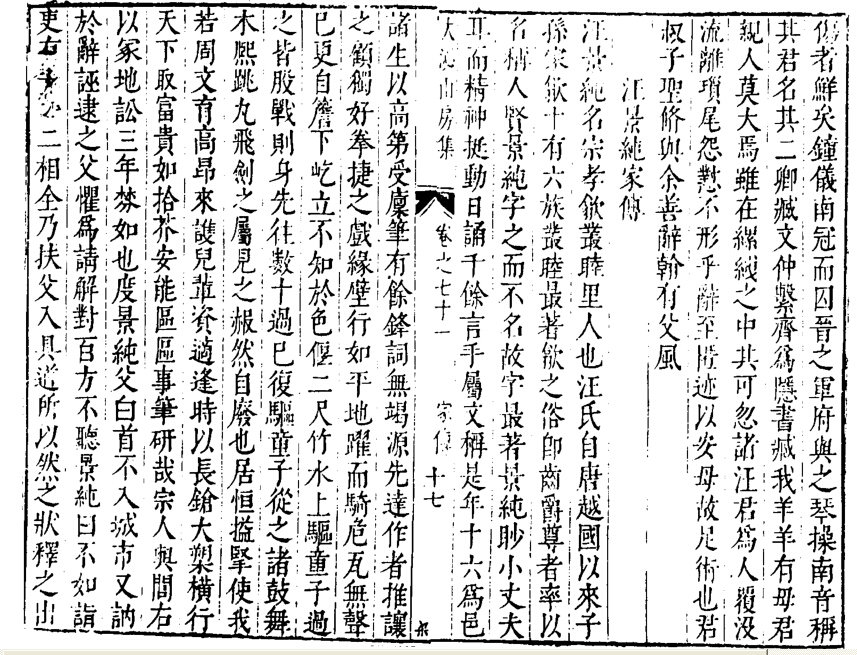 傷者鮮矣鐘儀南冠而囚晉之軍府與之琴操南音稱
其君名其二卿臧文仲繫齊為隱書臧我羊羊有母君
親人莫大焉雖在縲絏之中其可忽諸汪君為人覆沒
流離瑣尾怨懟不形乎辭至晦迹以安母故足術也君
叔子聖脩與余善辭翰有父風
汪景純家傳
汪景純名宗孝歙叢睦里人也汪氏自唐越國以來子
孫家歙十有六族叢睦最著歙之俗卽齒爵尊者率以
名稱人賢景純字之而不名故字最著景純眇小丈夫
耳而精神挺動日誦千餘言手屬文稱是年十六為邑
大泌山房集 卷之七十一 家傳 十七
諸生以高第受廩筆有餘鋒詞無竭源先達作者推讓
之顧獨好拳捷之戲緣壁行如平地躍而騎危瓦無聲
已更自簷下屹立不知於色偃二尺竹水上驅童子過
之皆股戰則身先往數十過已復驅童子從之諸鼓舞
木熙跳丸飛劍之屬見之赧然自廢也居恒搤掔使我
若周文育高昂來護兒輩資遒逢時以長鎗大槊橫行
天下取富貴如拾芥安能區區事筆研哉宗人輿閭右
以冢地訟三年棼如也度景純父白首不入城市又訥
於辭誣逮之父懼為請解對百方不聽景純曰不如詣
吏 二相全乃扶父入具道所以然之狀釋之出